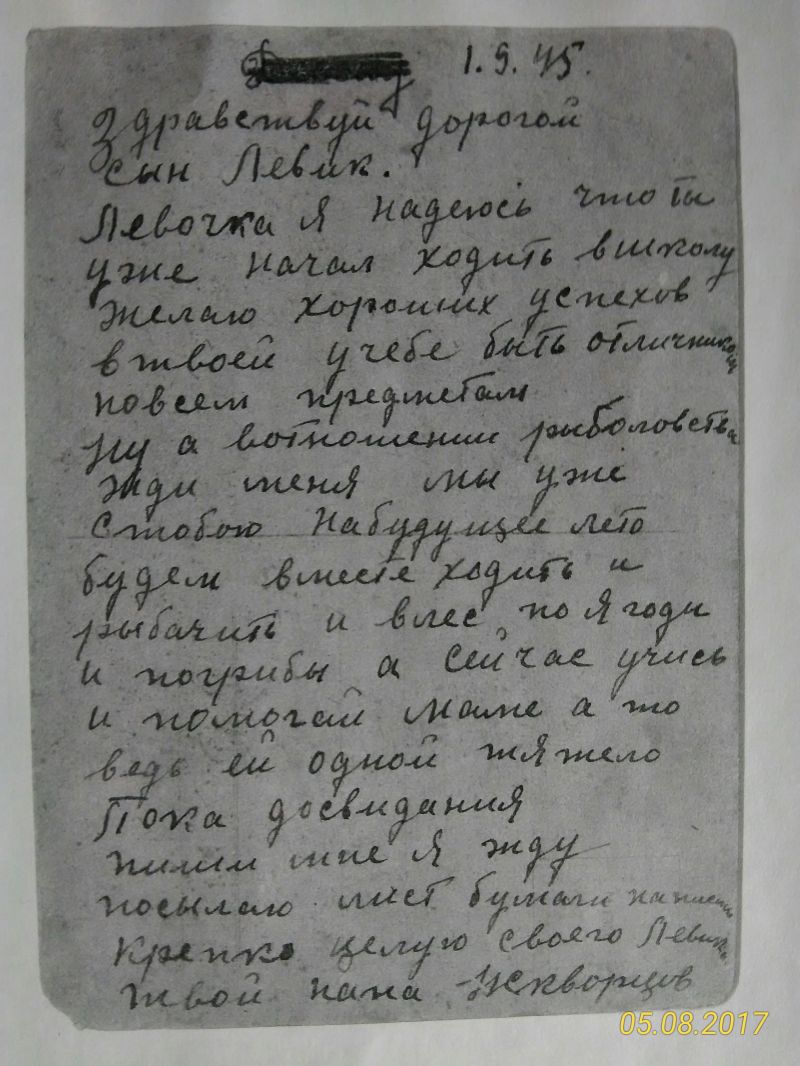 1.9.45.
Здравствуй дорогой
сын Левик.
Левочка я надеюсь что ты
уже начал ходить вшколу
желаю хороших успехов
втвоей учебе быть отличником
повсем предметам
Ну а вотношении рыболовства
жди меня мы уже
стобою набудущее лето
будем вместе ходить и
рыбачить и влес по ягоды
и погрибы а сейчас учись
и помогай маме а то
ведь ей одной тяжело
Пока досвидания
пиши мне я жду
посылаю лист бумаги
Крепко целую своего Левика
твой папа
05.08.2017